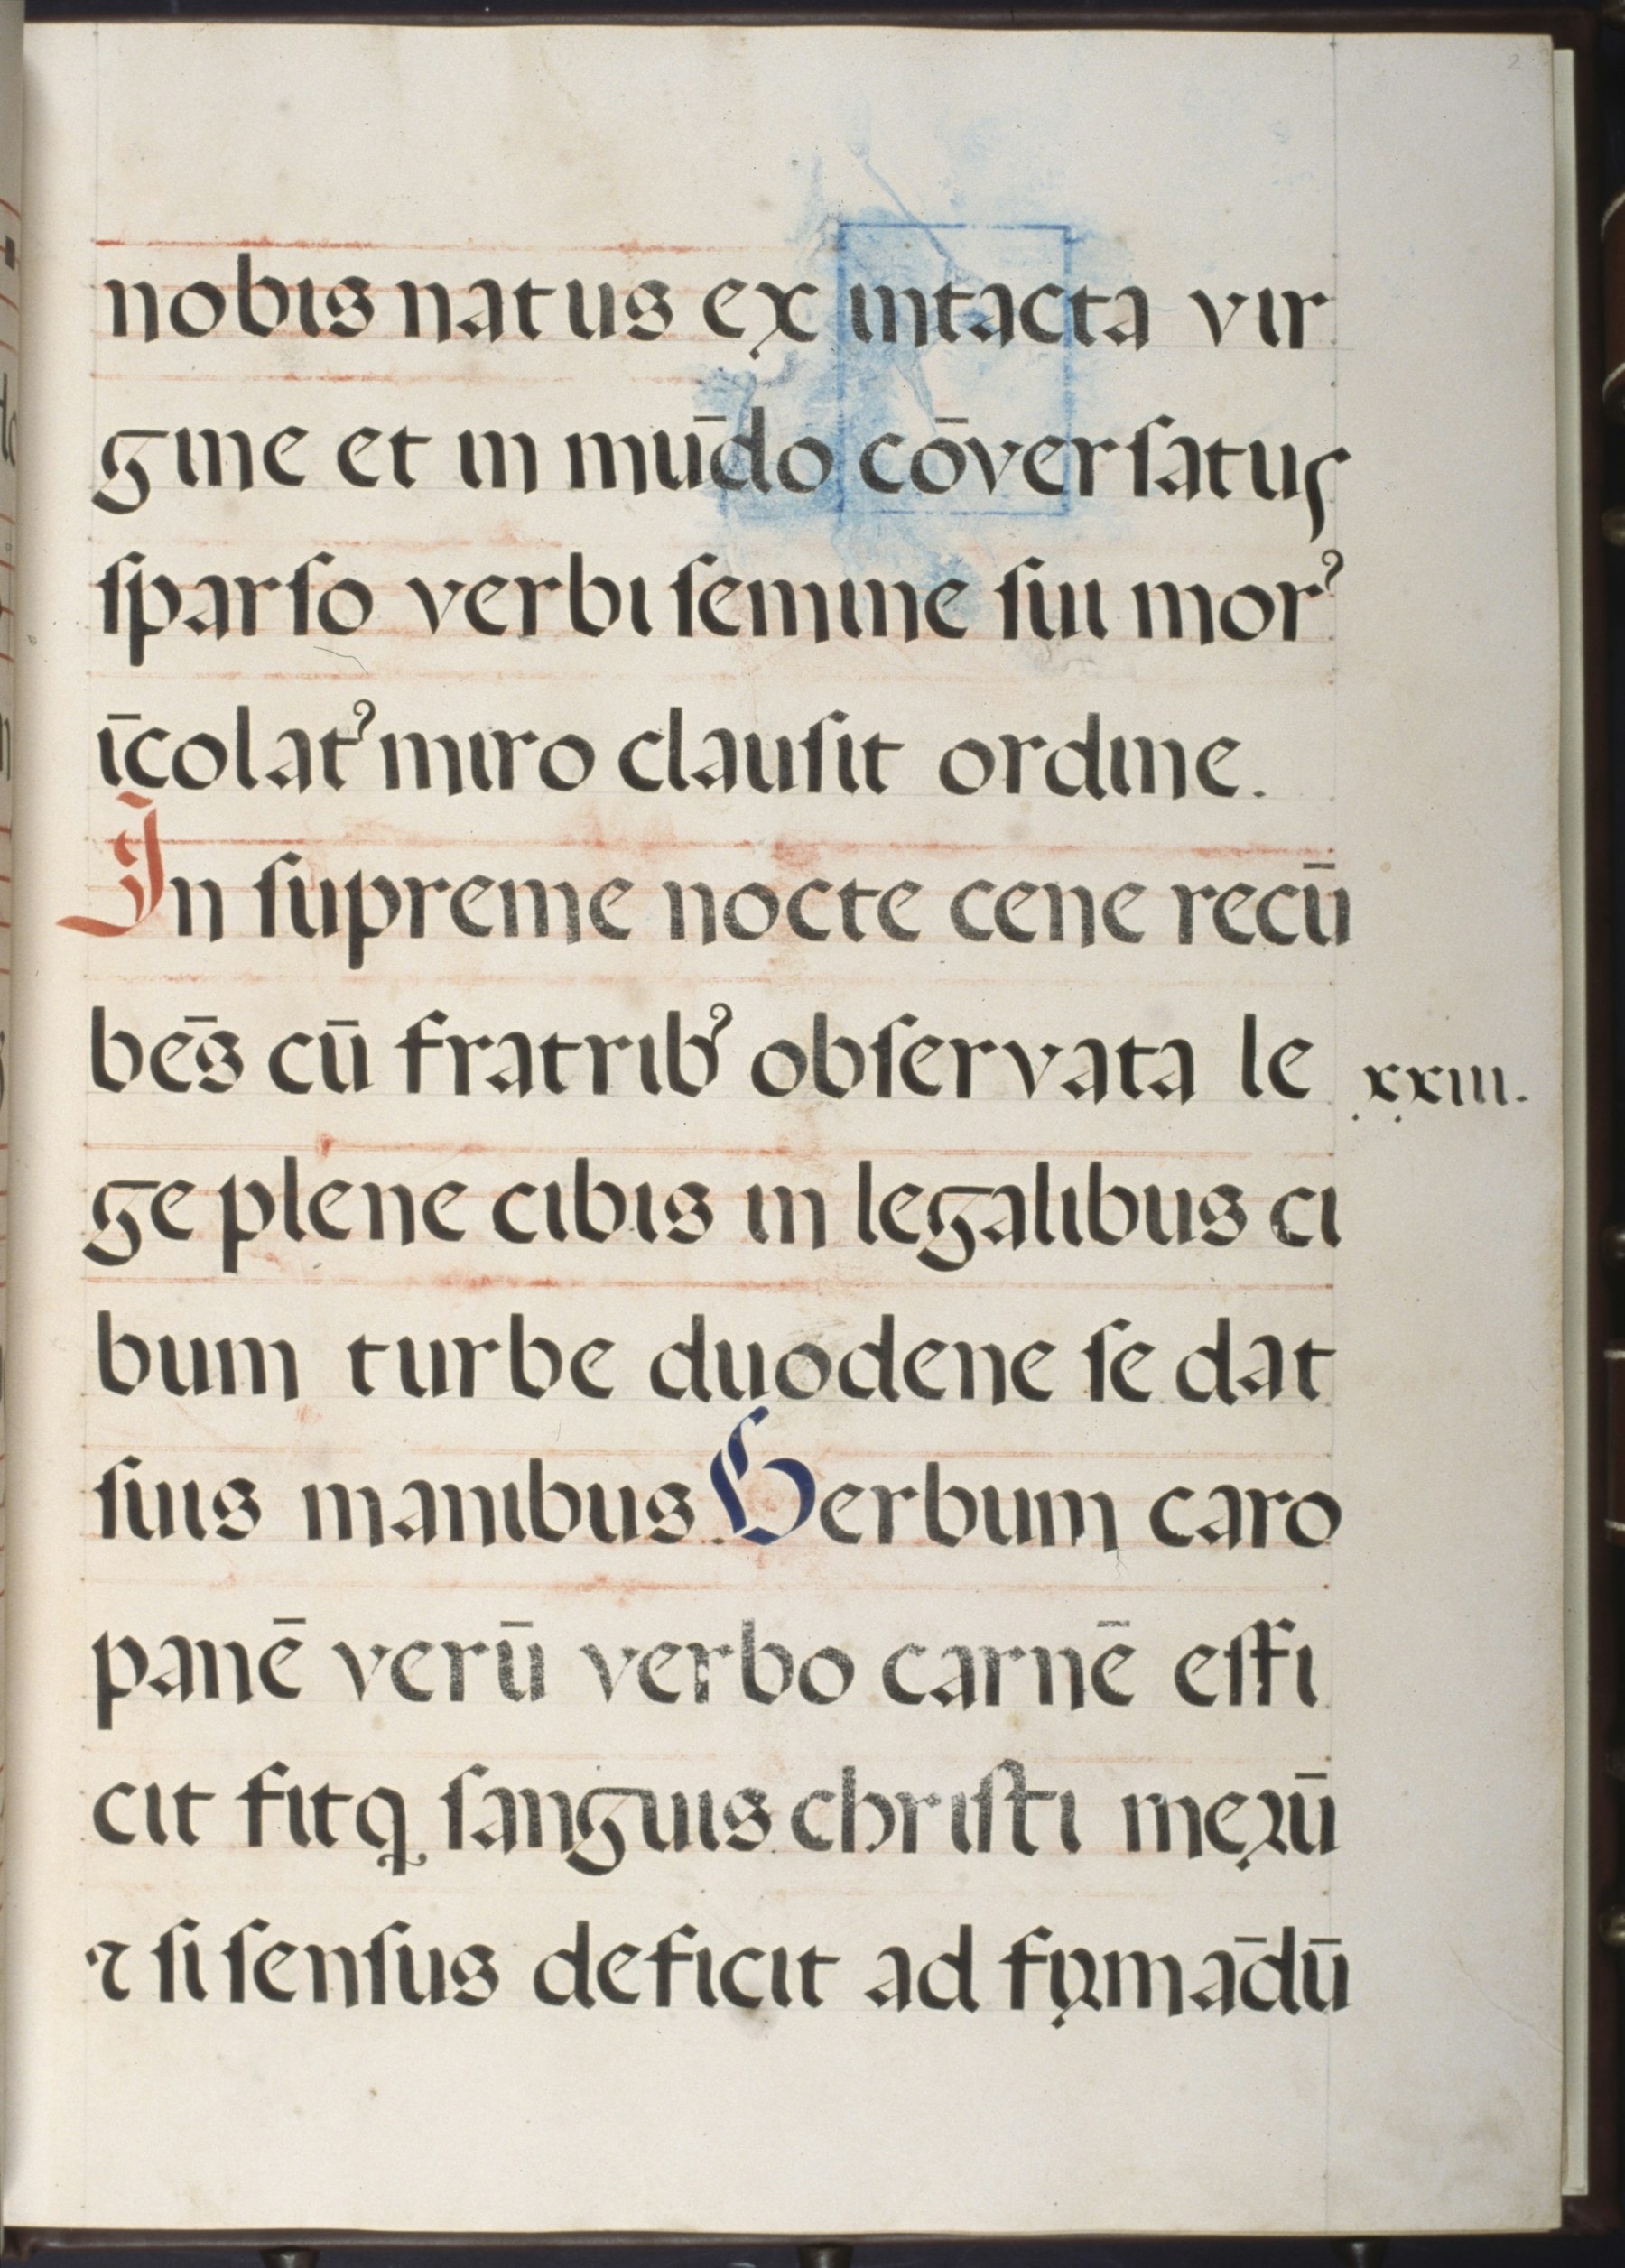 nobis natus ex intacta vir
gine et in mūdo cōverſatus
ſparſo verbi ſemine ſui mor᾽
īcolat᾽ miro clauſit ordine.
In ſupreme nocte cene recū
bēs cū fratrib᾽ obſervata le
xxiii.
ge plene cibis in legalibus ci
bum turbe duodene ſe dat
ſuis manibus. Verbum caro
panē verū verbo carnē effi
cit fitq ſanguis chriſti meꝛū
⁊ ſi ſenſus deficit ad fıꝛmādū
2